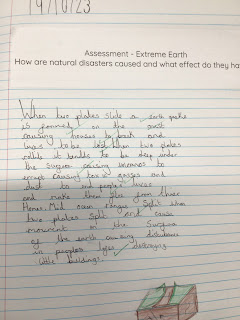 19/10/23
Assessment - Extreme Earth
How are natural disasters caused and what effect do they ha
When two plates slide a earth quake
is formed on the crust
causing houses to break and
lives to be lost when two plates
collide it tends to be deep under
the surface causing
erupt causing toxic gasses and
dust to end peoples lives
and make them flee from there
Homes. Mid ocean ranges Split when
two plates Split and cause
movement on the Surface
of the earth causing disturbance
in peoples lifes destroying
little buildings.